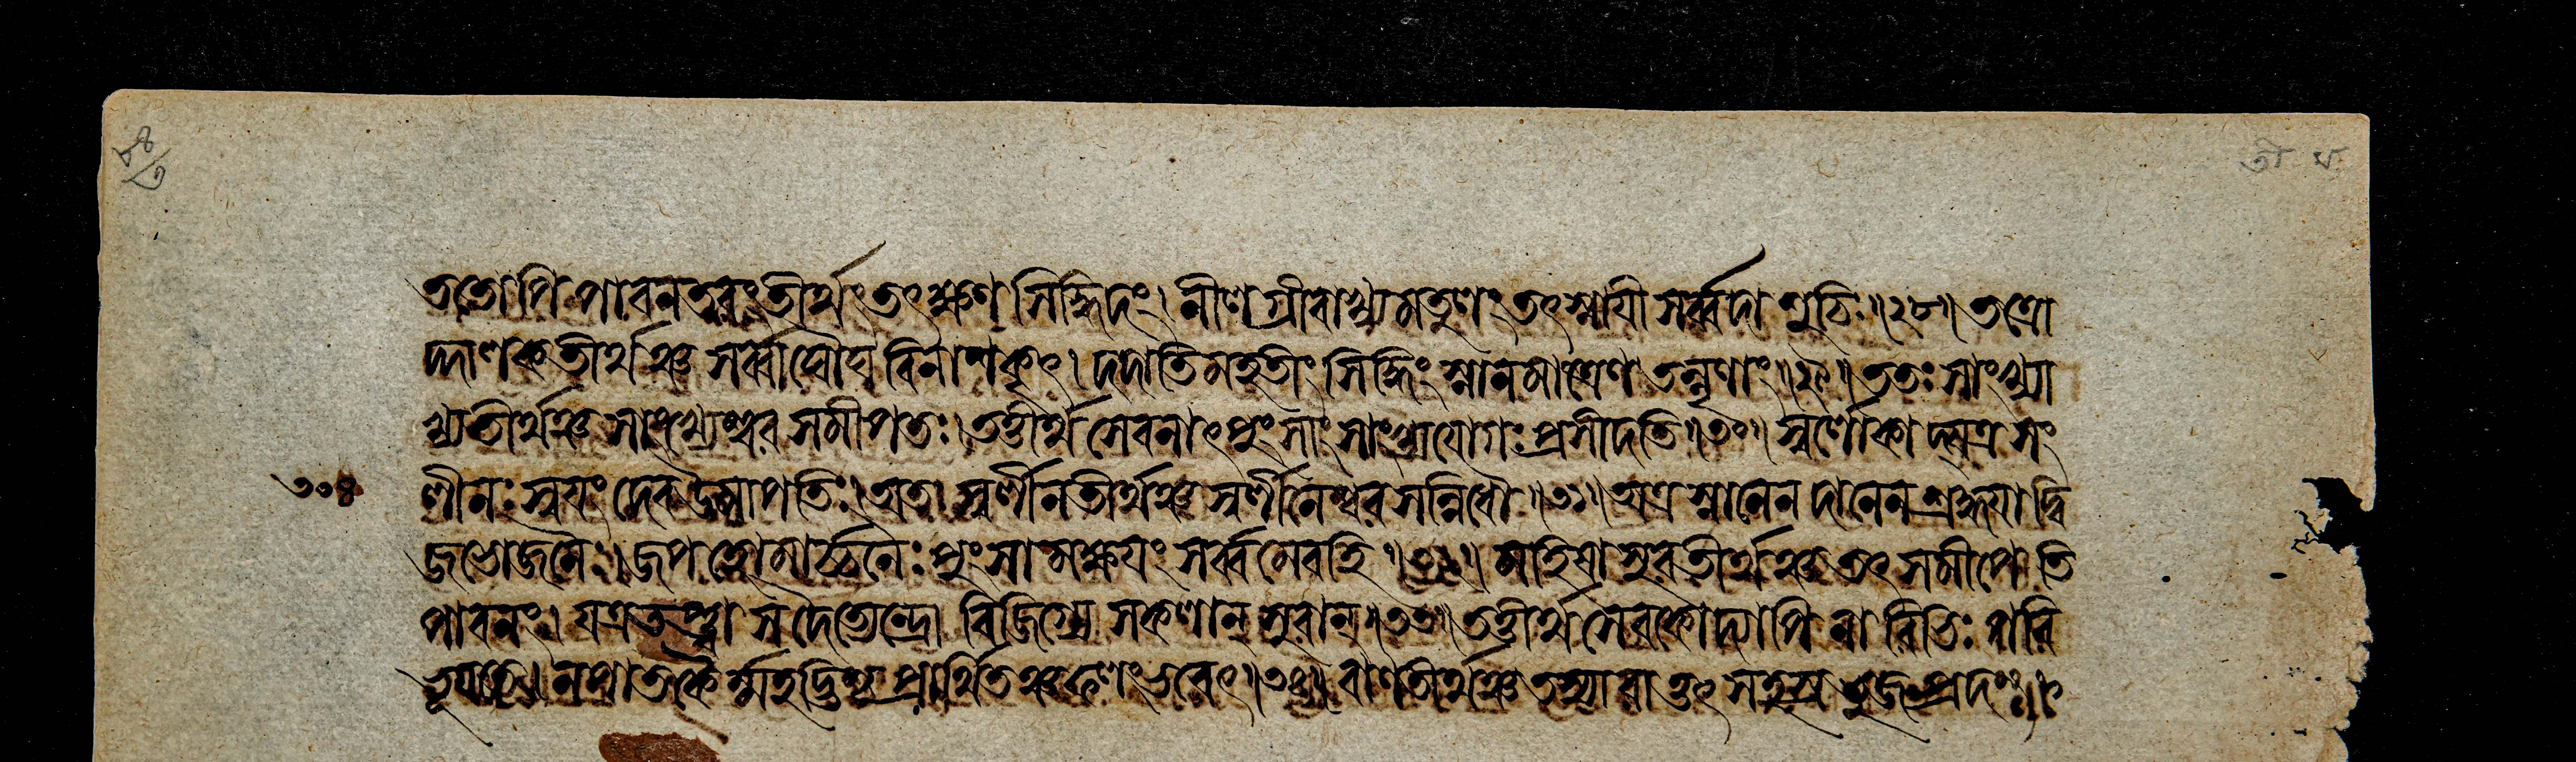 ততোপি পাবনতরং তীর্থং তৎক্ষণ সিদ্ধিদং। নীলগ্রীবাখ্যমতুলং তৎস্নায়ী সর্ব্বদা শুচিঃ॥২৮॥ তত্রো
দ্দালকতীর্থঞ্চ সর্ব্বাঘৌঘ বিনাশকৃৎ। দদাতি মহতীং সিদ্ধিং স্নানমাত্রেণ তন্নৃণাং॥২৯॥ ততঃ সাংখ্যা
খ্যতীর্থঞ্চ সাংখ্যেশ্বর সমীপতঃ। তত্তীর্থ সেবনাৎ পুংসাং সাংখ্যযোগঃ প্রসীদতি॥৩০॥ স্বর্লোকাদ্যত্র সং
লীনঃ স্বয়ং দেব উমাপতিঃ। অতঃ স্বর্লীনতীর্থঞ্চ স্বর্লীনেশ্বর সন্নিধৌ॥৩১॥ তত্র স্নানেন দানেন শ্রদ্ধয়া দ্বি
৩০৪
জভোজনৈঃ। জপ হোমার্চ্চনৈঃ পুংসামক্ষয়ং সর্ব্বমেবহি॥৩২॥ মহিষাসুরতীর্থঞ্চ তৎসমীপেতি
পাবনং। যত্র তপ্ত্বা স দৈত্যেন্দ্রো বিজিগ্যে সকলান্ সুরান্॥৩৩॥ তত্তীর্থ সেবকোদ্যাপি নারিভিঃ পরি
ভূয়তে। ন পাতকৈর্ম্মহদ্ভিশ্চ প্রার্থিতঞ্চ ফলং লভেৎ॥৩৪॥ বাণতীর্থঞ্চ তস্যারাৎ তৎ সহস্র ভুজপ্রদং।